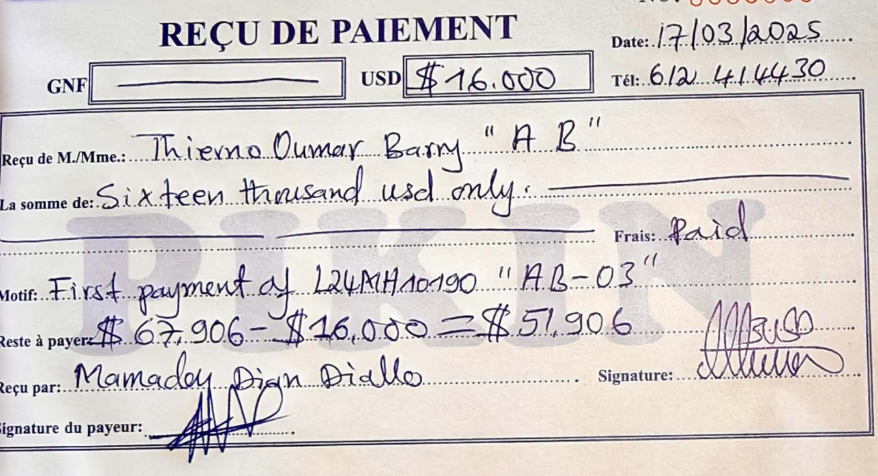 REÇU DE PAIEMENT
Date: 17/03/2025
GNF USD $16.000 Tél: 612 414430
Reçu de M./Mme.: Thierno Oumar Barry "AB"
La somme de: Sixteen thousand usd only.
Frais: Paid
Motif: First payment of L24MH10190 "AB-03"
Reste à payer: $67,906-$16,000=$51,906
Reçu par: Mamadou Dian Diallo Signature:
Signature du payeur:
PIKIN